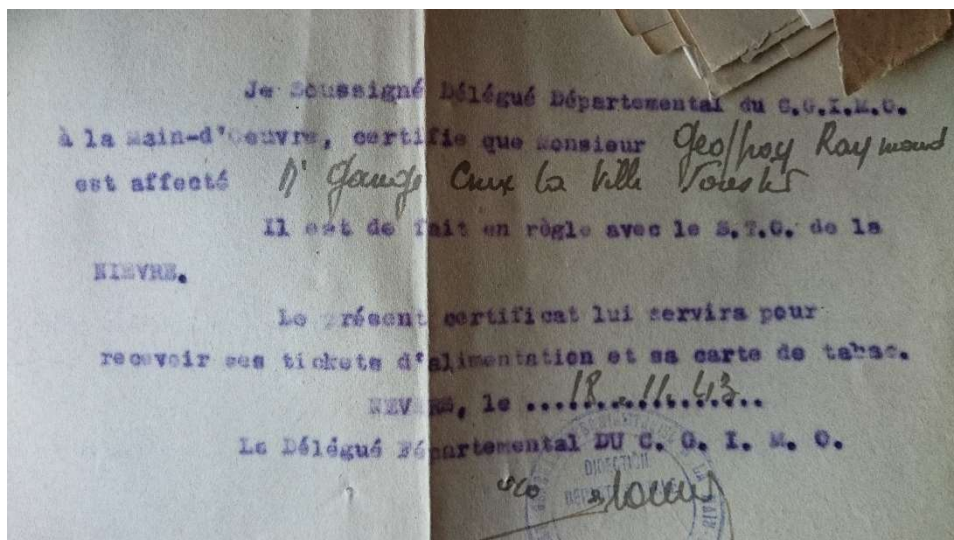 Je Soussigné Délégué Départemental du C.G.I.M.O.
à la Main-d'Oeuvre, certifie que Monsieur Geoffroy Raymond
est affecté Crux la Ville
Il est de fait en règle avec le S.T.O. de la
NIEVRE.
Le présent certificat lui servira pour
recevoir ses tickets d'alimentation et sa carte de tabac.
NEVERS, le ...18..11..43...
Le Délégué Départemental DU C. G. I. M. O.
DIRECTION